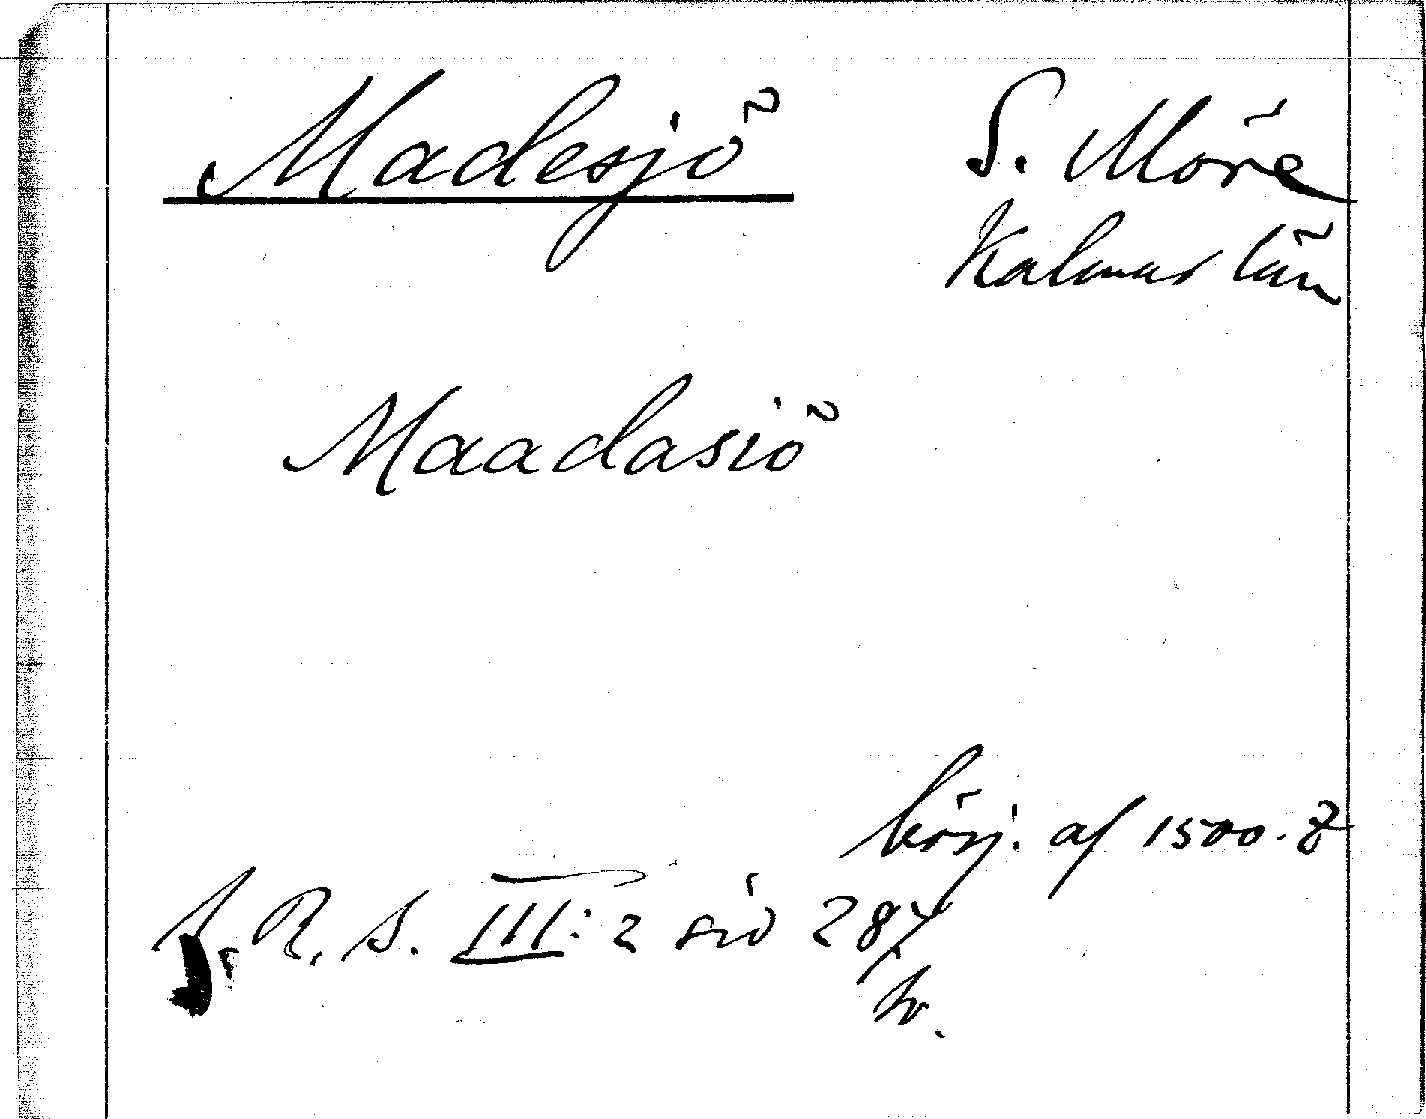 Madesjö S. Möre
Kalmar län
Maadasiö
börj. af 1500-t
S. R. S. III: 2 sid 287